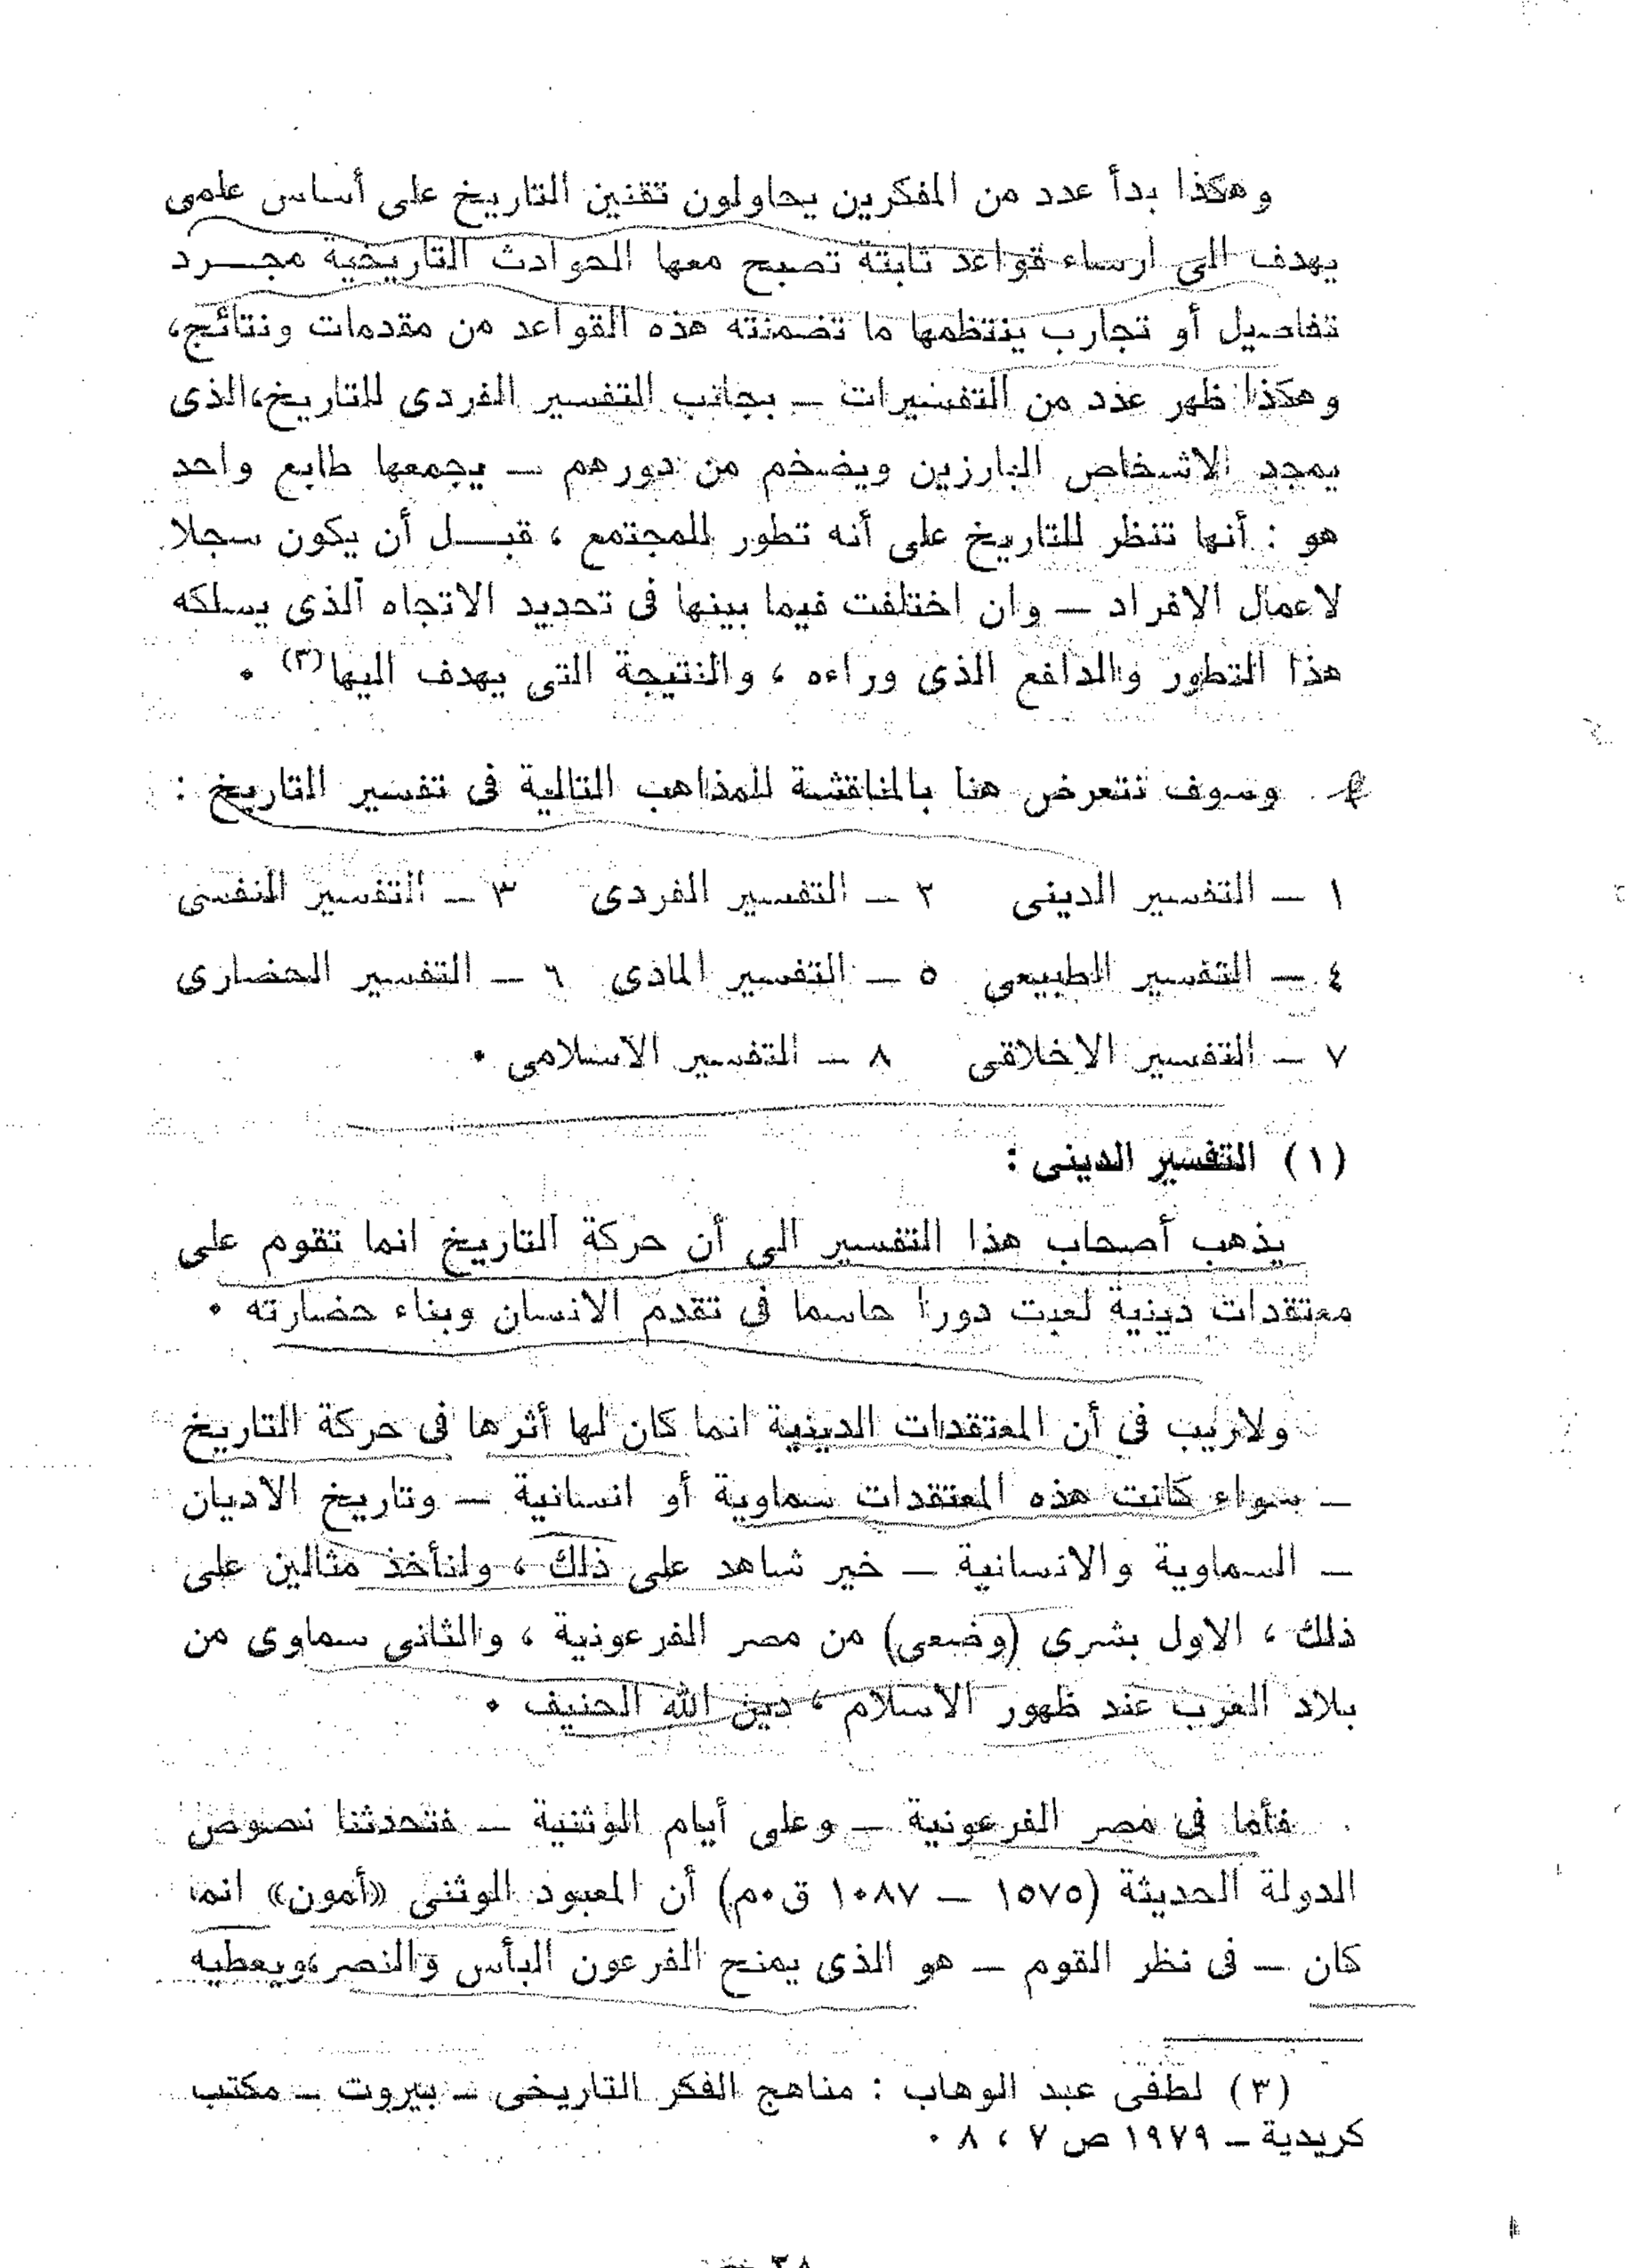 وهكذا بدأ عدد من المفكرين يحاولون تقنين التاريخ على أساس علمى
يهدف الى ارساء قواعد ثابتة تصبح معها الحوادث التاريخية مجرد
تفاصيل أو تجارب ينتظمها ما تضمنته هذه القواعد من مقدمات ونتائج،
وهكذا ظهر عدد من التفسيرات – بجانب التفسير الفردى للتاريخ،الذى
يمجد الاشخاص البارزين ويضخم من دورهم – يجمعها طابع واحد
هو : أنها تنظر للتاريخ على أنه تطور للمجتمع ، قبل أن يكون سجلا
لاعمال الافراد – وان اختلفت فيما بينها فى تحديد الاتجاه الذى يسلكه
هذا التطور والدافع الذى وراءه ، والنتيجة التى يهدف اليها(٣) ٠
وسوف نتعرض هنا بالمناقشة للمذاهب التالية فى تفسير التاريخ :
١ – التفسير الدينى ٢ – التفسير الفردى ٣ – التفسير النفسى
٤ – التفسير الطبيعى ٥ – التفسير المادى ٦ – التفسير الحضارى
٧ – التفسير الاخلاقى ٨ – التفسير الاسلامى ٠
(١) التفسير الدينى :
يذهب أصحاب هذا التفسير الى أن حركة التاريخ انما تقوم على
معتقدات دينية لعبت دورا حاسما فى تقدم الانسان وبناء حضارته ٠
ولاريب فى أن المعتقدات الدينية انما كان لها أثرها فى حركة التاريخ
– سواء كانت هذه المعتقدات سماوية أو انسانية – وتاريخ الاديان
– السماوية والانسانية – خير شاهد على ذلك ، ولنأخذ مثالين على
ذلك ، الاول بشرى (وضعى) من مصر الفرعونية ، والثانى سماوى من
بلاد العرب عند ظهور الاسلام ، دين الله الحنيف ٠
فأما فى مصر الفرعونية – وعلى أيام الوثنية – فتحدثنا نصوص
الدولة الحديثة (١٥٧٥ – ١٠٨٧ ق٠م) أن المعبود الوثنى «أمون» انما
كان – فى نظر القوم – هو الذى يمنح الفرعون البأس والنصر،ويعطيه
(٣) لطفى عبد الوهاب : مناهج الفكر التاريخى – بيروت – مكتب
كريدية – ١٩٧٩ ص ٧ ، ٨ ٠
٣٨